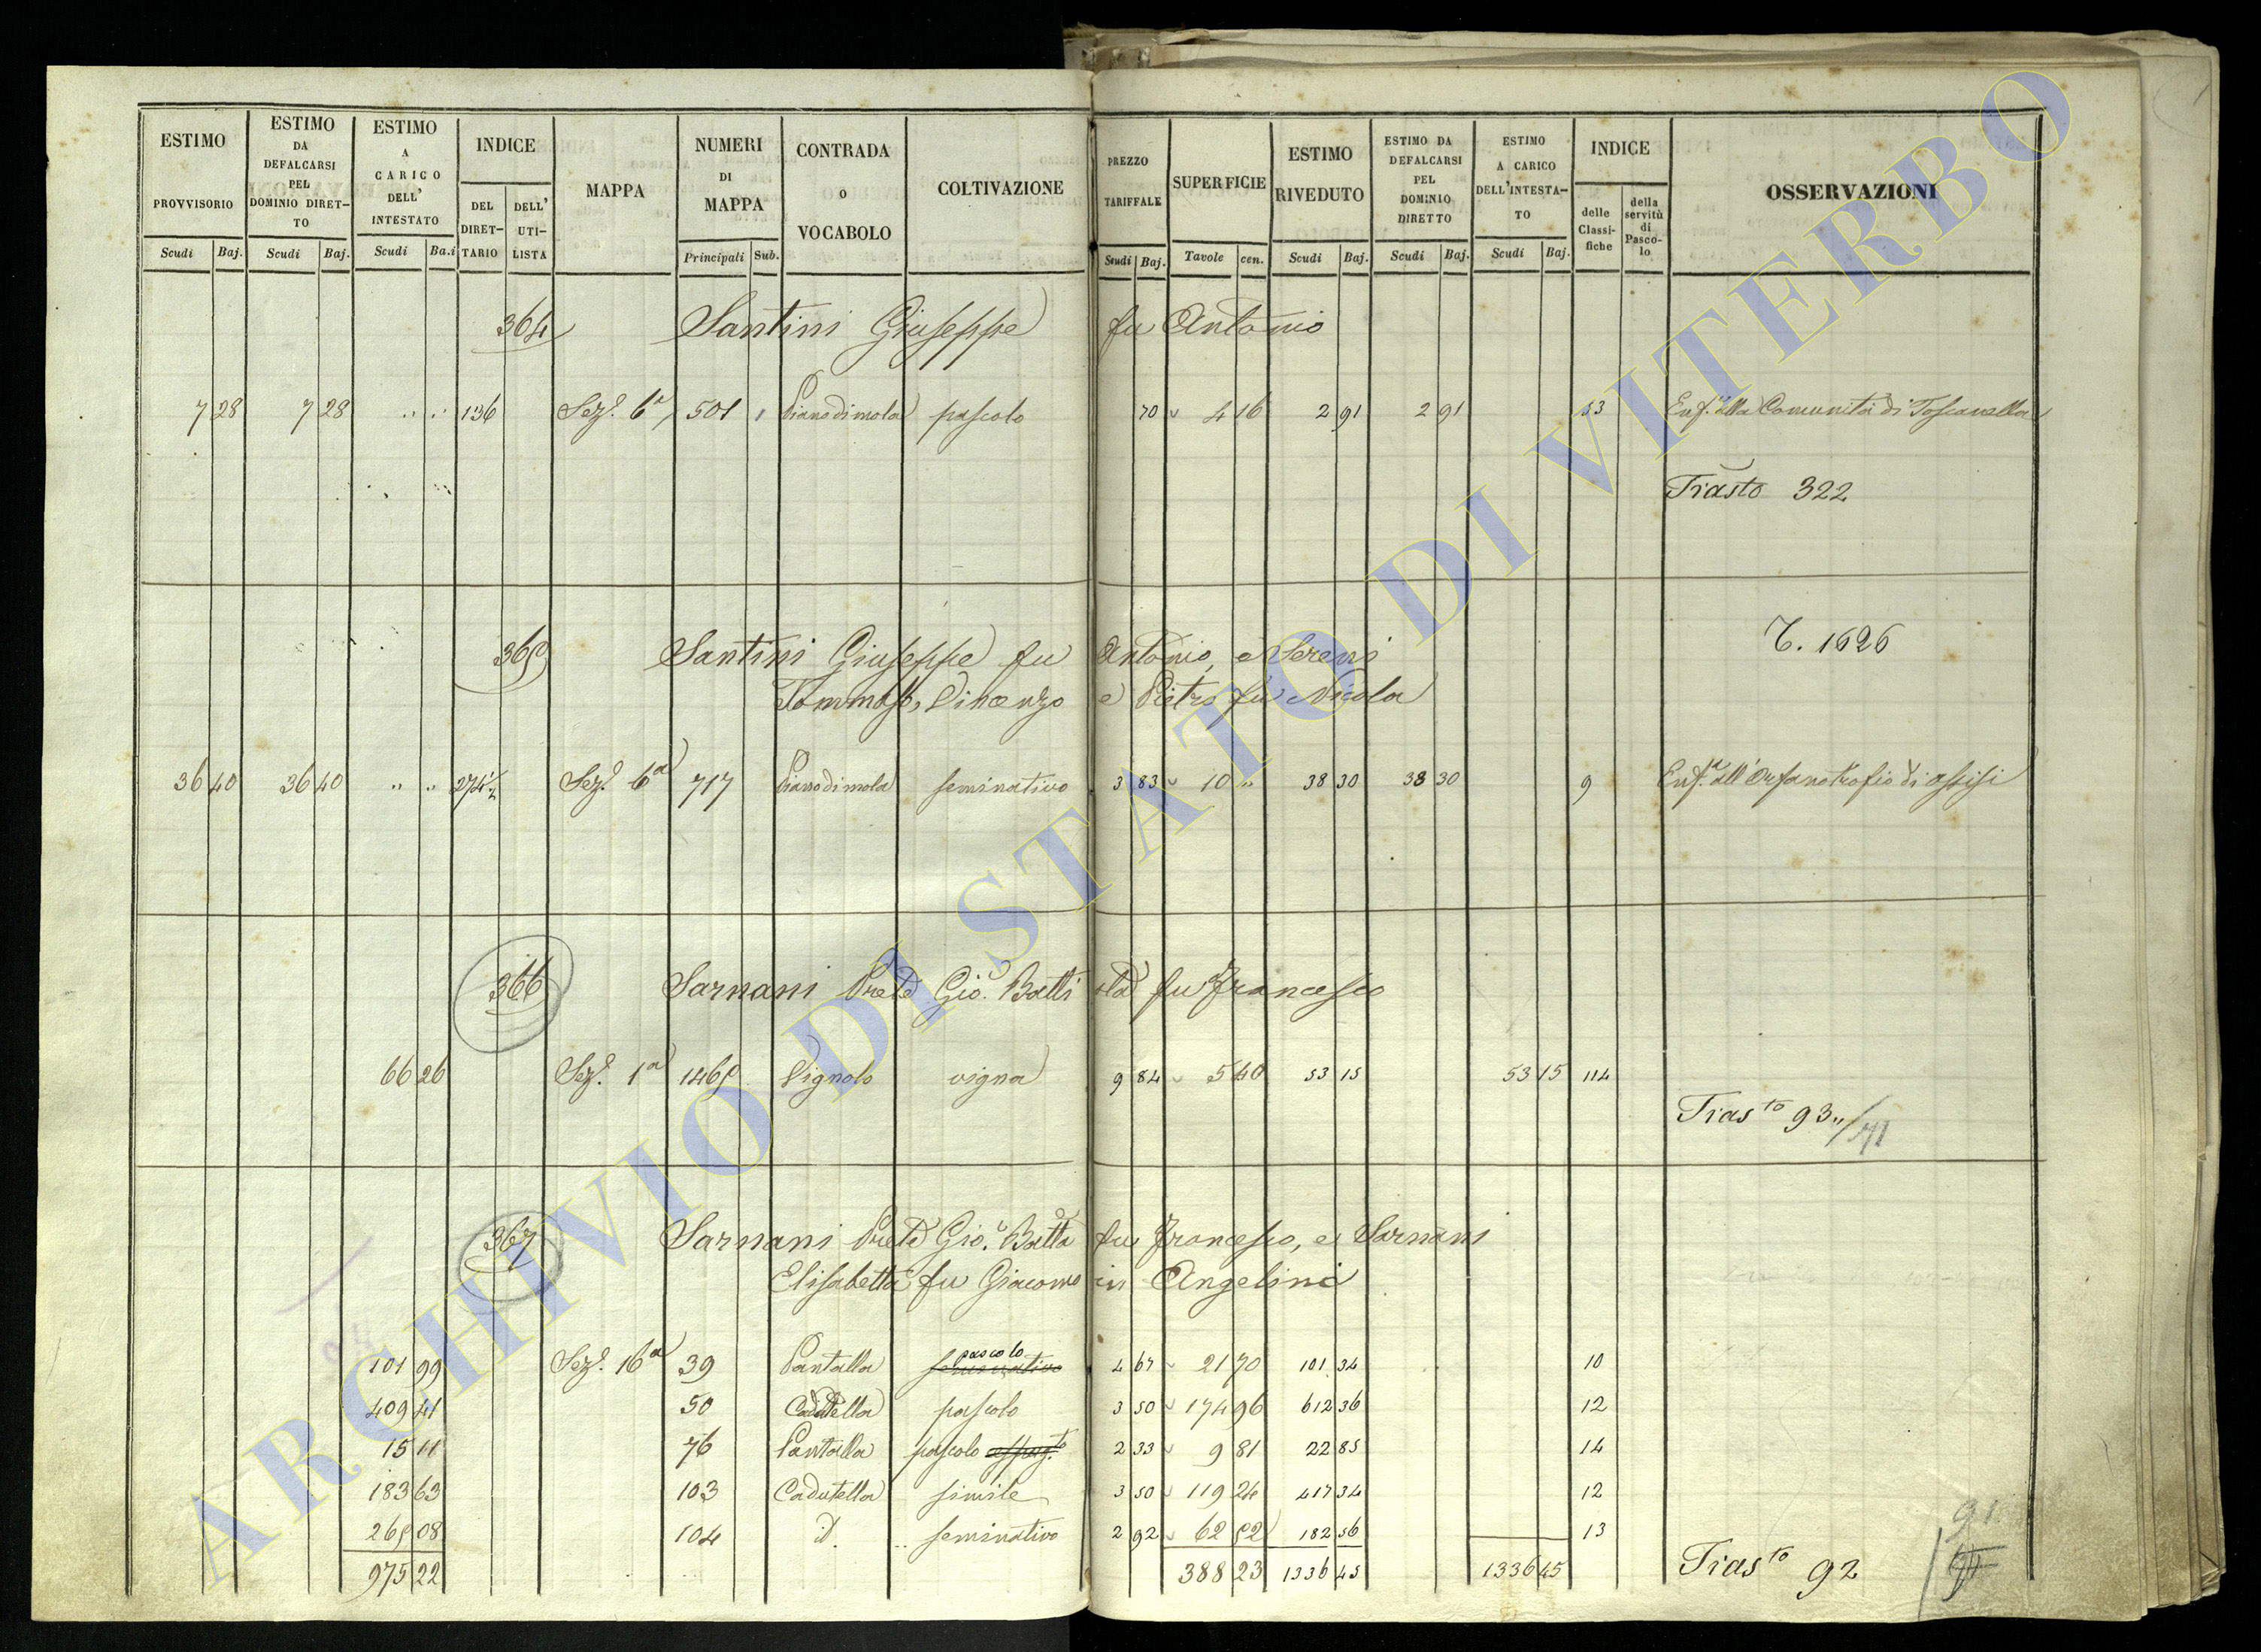 ESTIMO PROVVISORIO Scudi Baj.
ESTIMO DA DEFALCARSI PEL DOMINIO DIRET-TO Scudi Baj.
ESTIMO A CARICO DELL' INTESTATO Scudi Ba.i
INDICE DEL DIRET-TARIO DELL' UTI-LISTA
MAPPA
NUMERI DI MAPPA Principali Sub.
CONTRADA o VOCABOLO
COLTIVAZIONE
PREZZO TARIFFALE Scudi Baj.
SUPERFICIE Tavole cen.
ESTIMO RIVEDUTO Scudi Baj.
ESTIMO DA DEFALCARSI PEL DOMINIO DIRETTO Scudi Baj.
ESTIMO A CARICO DELL'INTESTA-TO Scudi Baj.
INDICE delle Classi-fiche della servitù di Pasco-lo
OSSERVAZIONI
364 Santini Giuseppe fu Antonio
7 28 7 28 " " 136 Sez.e 6a 501 1 Piano di mola pascolo 70 4 16 2 91 2 91 53 Enf.a alla Comunità di Toscanella
Trasto 322
365 Santini Giuseppe fu Antonio, e Sereni
T. 1626
Tommaso, Vincenzo e Pietro fu Nicola
36 40 36 40 " " 274 1/2 Sez.e 6a 717 Piano di mola seminativo 3 83 10 " 38 30 38 30 9 Enf.a all'Orfanotrofio di Assisi
366 Sarnani Prete Gio. Battista fu Francesco
66 26 Sez.e 1a 1465 Vignolo vigna 9 84 5 40 53 15 53 15 114
Trasto 93 " /
367 Sarnani Prete Gio. Batta fu Francesco, e Sarnani
Elisabetta fu Giacomo in Angelini
pascolo
101 99 Sez.e 16a 39 Pantalla seminativo 4 67 21 70 101 34 10
409 41 50 Cadutella pascolo 3 50 174 96 612 36 12
15 11 76 Pantalla pascolo 2 33 9 81 22 85 14
183 63 103 Cadutella simile 3 50 119 24 417 34 12
265 08 104 d. seminativo 2 92 62 52 182 56 13
91
975 22 388 23 1336 45 1336 45 Trasto 92
ARCHIVIO DI STATO DI VITERBO